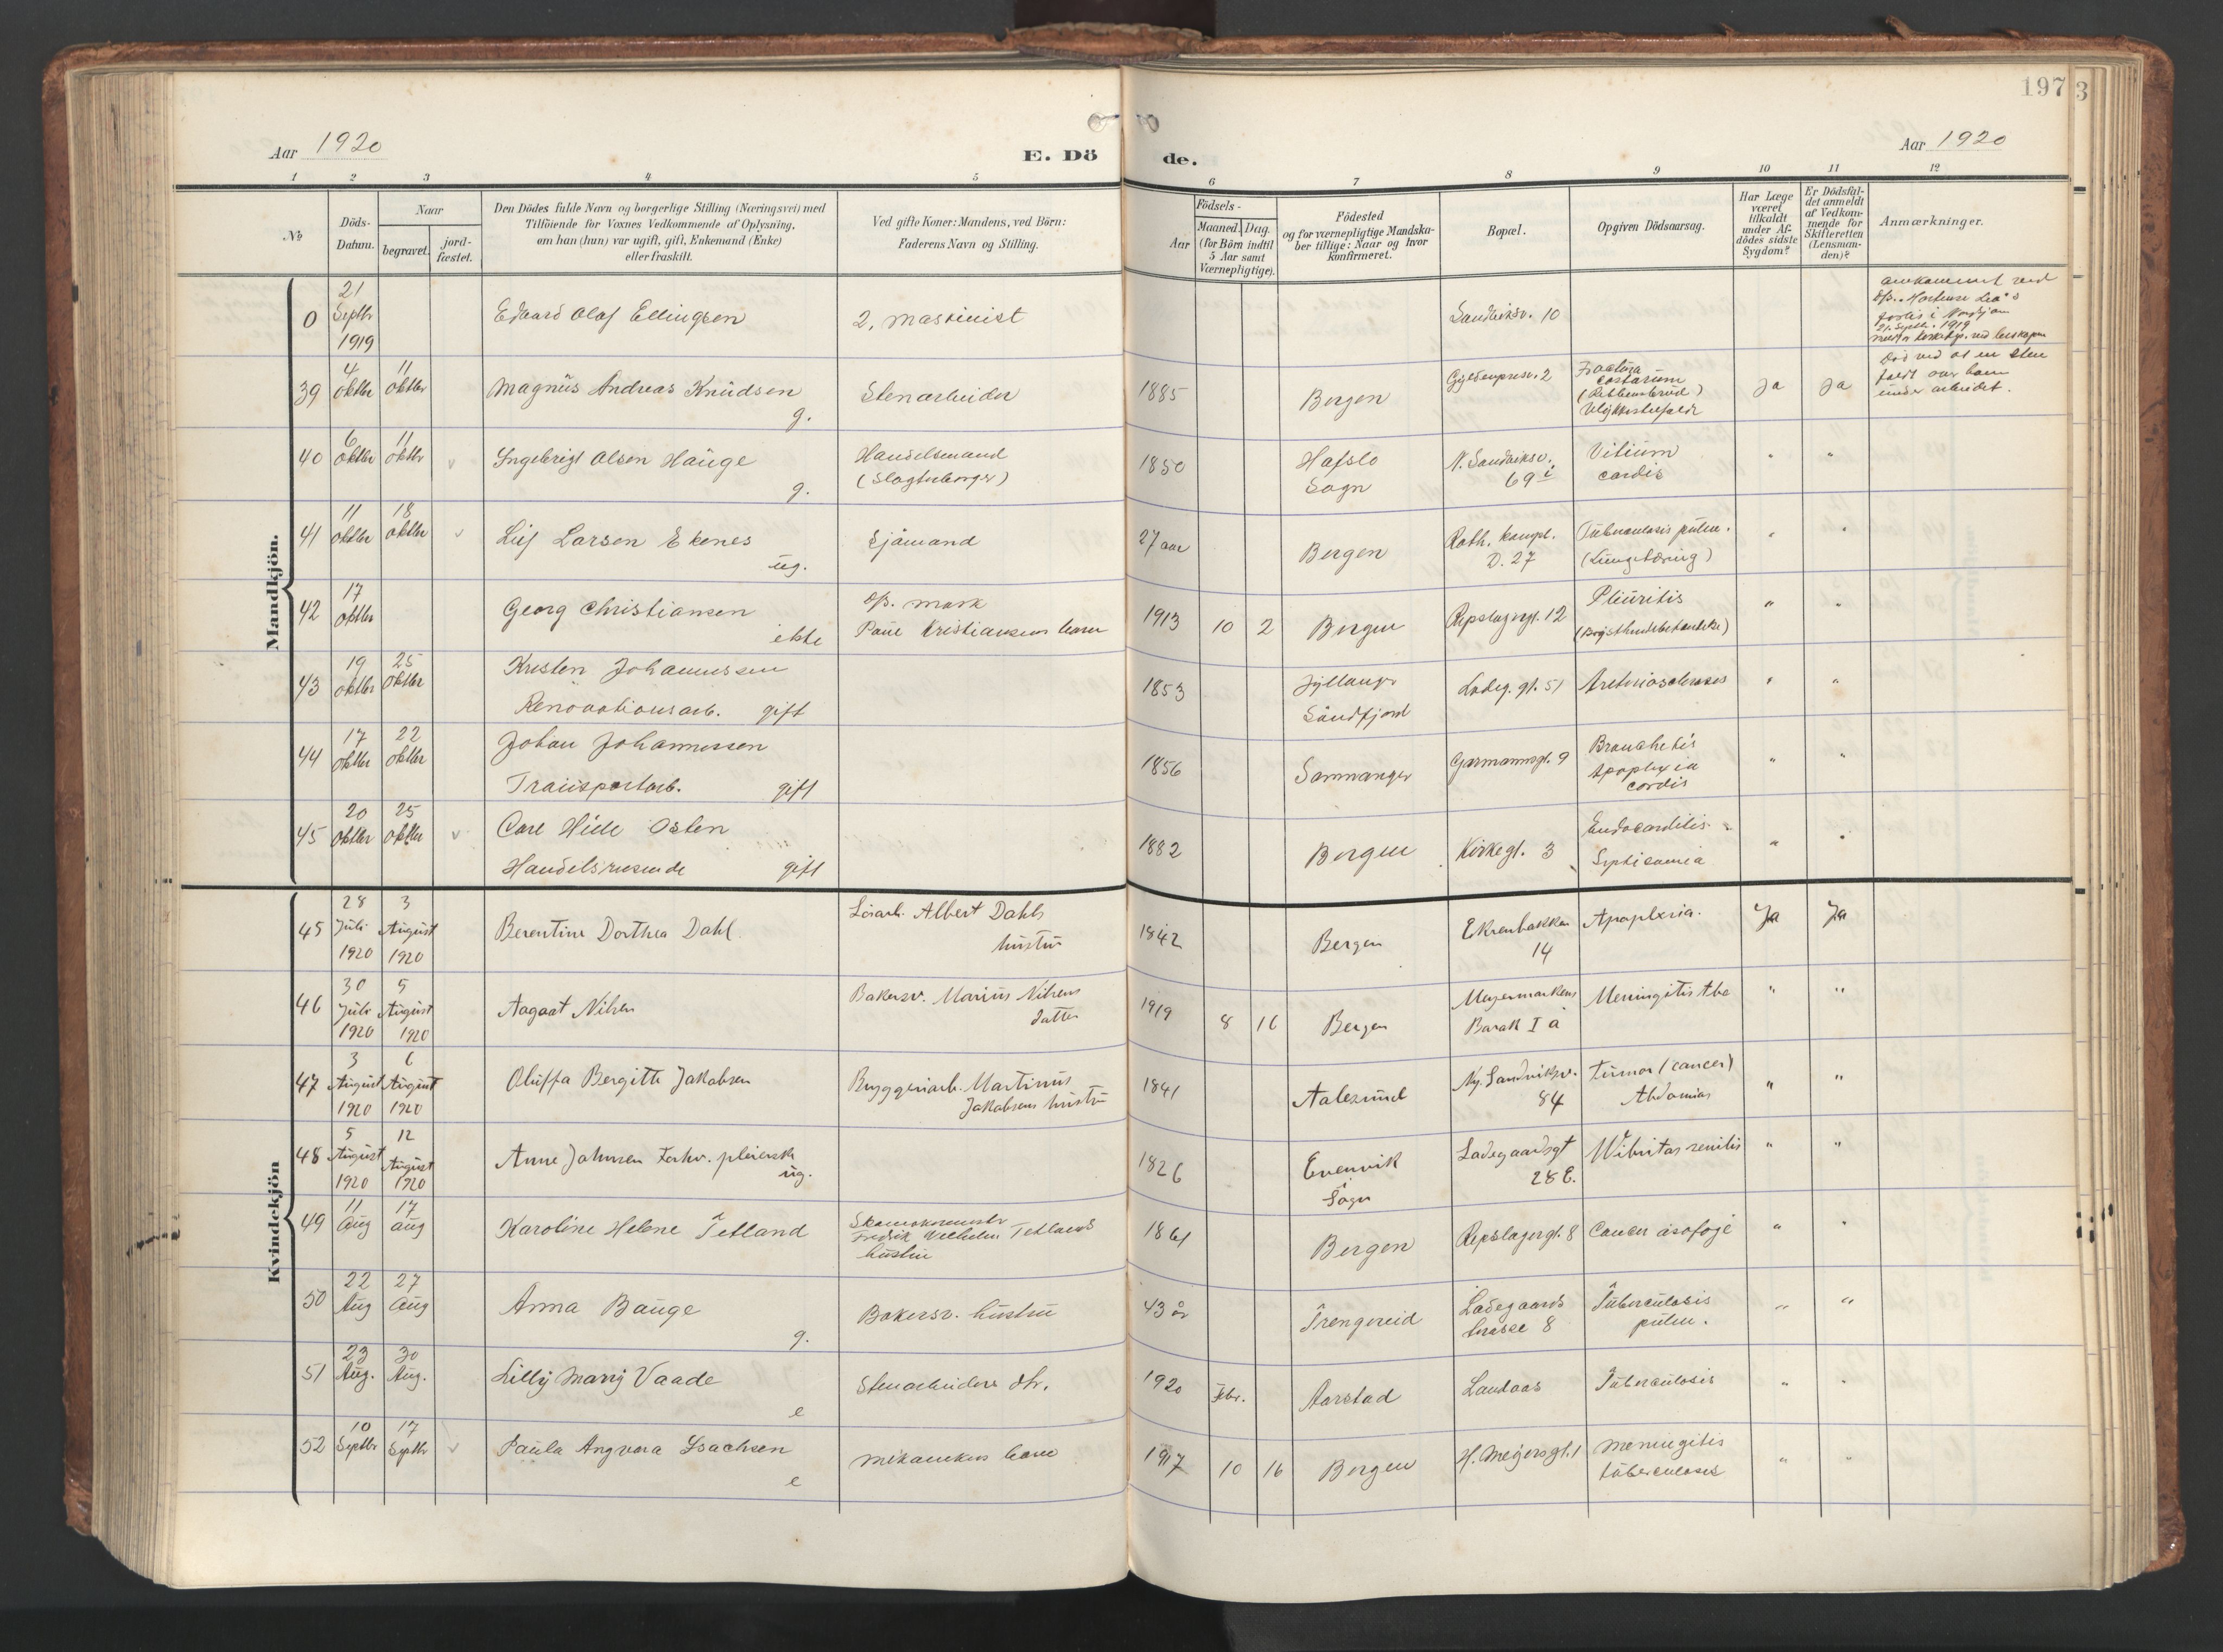 197
3
Aar 1920
E. Dö
de.
Aar 1920
1 2 3 4 5
6 7 8 9 10 11 12
№
Döds-
Datum.
Naar
begravet.
jord-
fæstet.
Den Dödes fulde Navn og borgerlige Stilling (Næringsvei) med
Tilföiende for Voxnes Vedkommende af Oplysning,
om han (hun) var ugift, gift, Enkemand (Enke)
eller fraskilt.
Ved gifte Koner: Mandens, ved Börn:
Faderens Navn og Stilling.
Födsels-
Aar
Maaned. Dag.
(for Börn indtil
5 Aar samt
Værnepligtige).
Födested
og for værnepligtige Mandska-
ber tillige: Naar og hvor
konfirmeret.
Bopæl.
Opgiven Dödsaarsag.
Har Læge
været
tilkaldt
under Af-
dödes sidste
Sygdom?
Er Dödsfal-
det anmeldt
af Vedkom-
mende for
Skifteretten
(Lensman-
den)?
Anmærkninger.
Mandkjön.
0
21
Septbr
1919
Edvard Olaf Ellingsen
2, maskinist
Sandviksv. 10
omkommet ved
forlis i
21. Septbr. 1919
39
4 11
oktbr oktbr
Magnus Andreas Knudsen
g.
Stenarbeider
1885
Bergen
2
Fractura
costarum
(Ribbensbrud)
Ulykkestilfælde
Ja Ja
Död ved at en Sten
faldt over ham
under arbeidet.
40
6 11
oktbr oktbr
Ingebrigt Olsen Hauge
g.
Handelsmand
(Slagtuborger)
1850
Hafslo
Sogn
N. Sandviksv.
69 i
Vitium
cordis
" "
41
11 18
oktbr oktbr
Leif Larsen Ekenes
ug.
Sjömand
27 aar
Bergen
Roth. kompl.
D. 27
Tuberculosis pulm.
(Lungetæring)
" "
42
17
oktbr
Georg Christiansen
ekte
Paul Kristiansens barn
1913 10 2
Bergen
Repslagergt. 12
Pleuritis
(Brysthindebetændelse)
" "
43
19 25
oktbr oktbr
Kristen Johannessen
Renovationsarb. gift
1853
Jyllanger
Söndfjord
Ladeg. gt. 51
Arteriosclerosis
" "
44
17 22
oktbr oktbr
Johan Johannessen
Transportarb. gift
1856
Samnanger
Garmannsgt. 9
Bronchitis
Apoplexia
cordis
" "
45
20 25
oktbr oktbr
Carl Hille Osten
Handelsreisende gift
1882
Bergen
Kirkegt. 3
Endocarditis
Septicæmia
" "
Kvindekjön
45
28 3
Juli August
1920 1920
Berentine Dorthea Dahl
Lösarb. Albert Dahls
hustru
1842
Bergen
Ekrenbakken
14
Apoplexia.
Ja Ja
46
30 5
Juli August
1920 1920
Aagaat Nilsen
Bakersv. Marius Nilsens
datter
1919 8 16
Bergen
Meyermarkens
Barak I a
Meningitis tbc
" "
47
3 6
August August
1920 1920
Oluffa Bergitte Jakobsen
Bryggeriarb. Martinus
Jakobsens hustru
1841
Aalesund
Ny. Sandviksv.
84
Tumor (cancer)
Abdominis
" "
48
5 12
August August
1920 1920
Anne Johnsen Forhv. pleierske
ug.
1826
Evenvik
Sogn
Ladegaardsgt
28 E.
senilis
" "
49
11 17
Aug aug
Karoline Helene Tetland
Fredrik Wilhelm Tetlands
hustru
1861
Bergen
Repslagergt. 8
Cancer øsofage
" "
50
22 27
Aug Aug
Anna Bauge
g.
Bakersv. hustru
43 år
Trengereid
Ladegaards
terasse 8
Tuberculosis
pulm.
" "
51
23 30
Aug. Aug.
Lilly Mary Vaade
e
Stenarbeiders dtr.
1920 Febr.
Aarstad
Landaas
Tuberculosis
" "
52
10 17
Septbr Septbr
Paula Angvora Isachsen
e
mekanikers barn
1917 10 16
Bergen
H. Meyersgt. 1
Meningitis
tuberculosis
" "